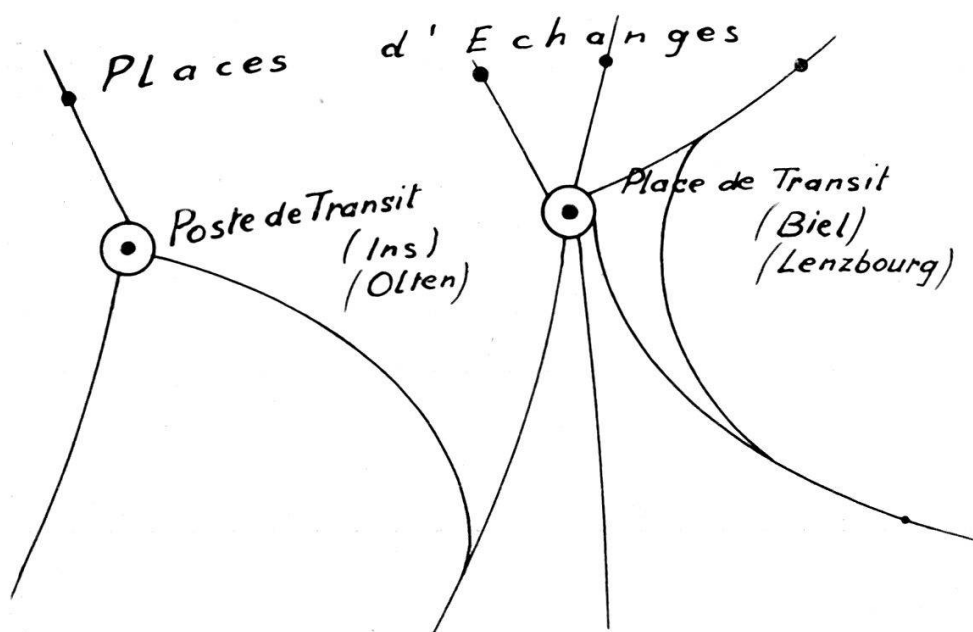 Places d'Echanges
Poste de Transit
(Ins)
(Olten)
Place de Transit
(Biel)
(Lenzbourg)